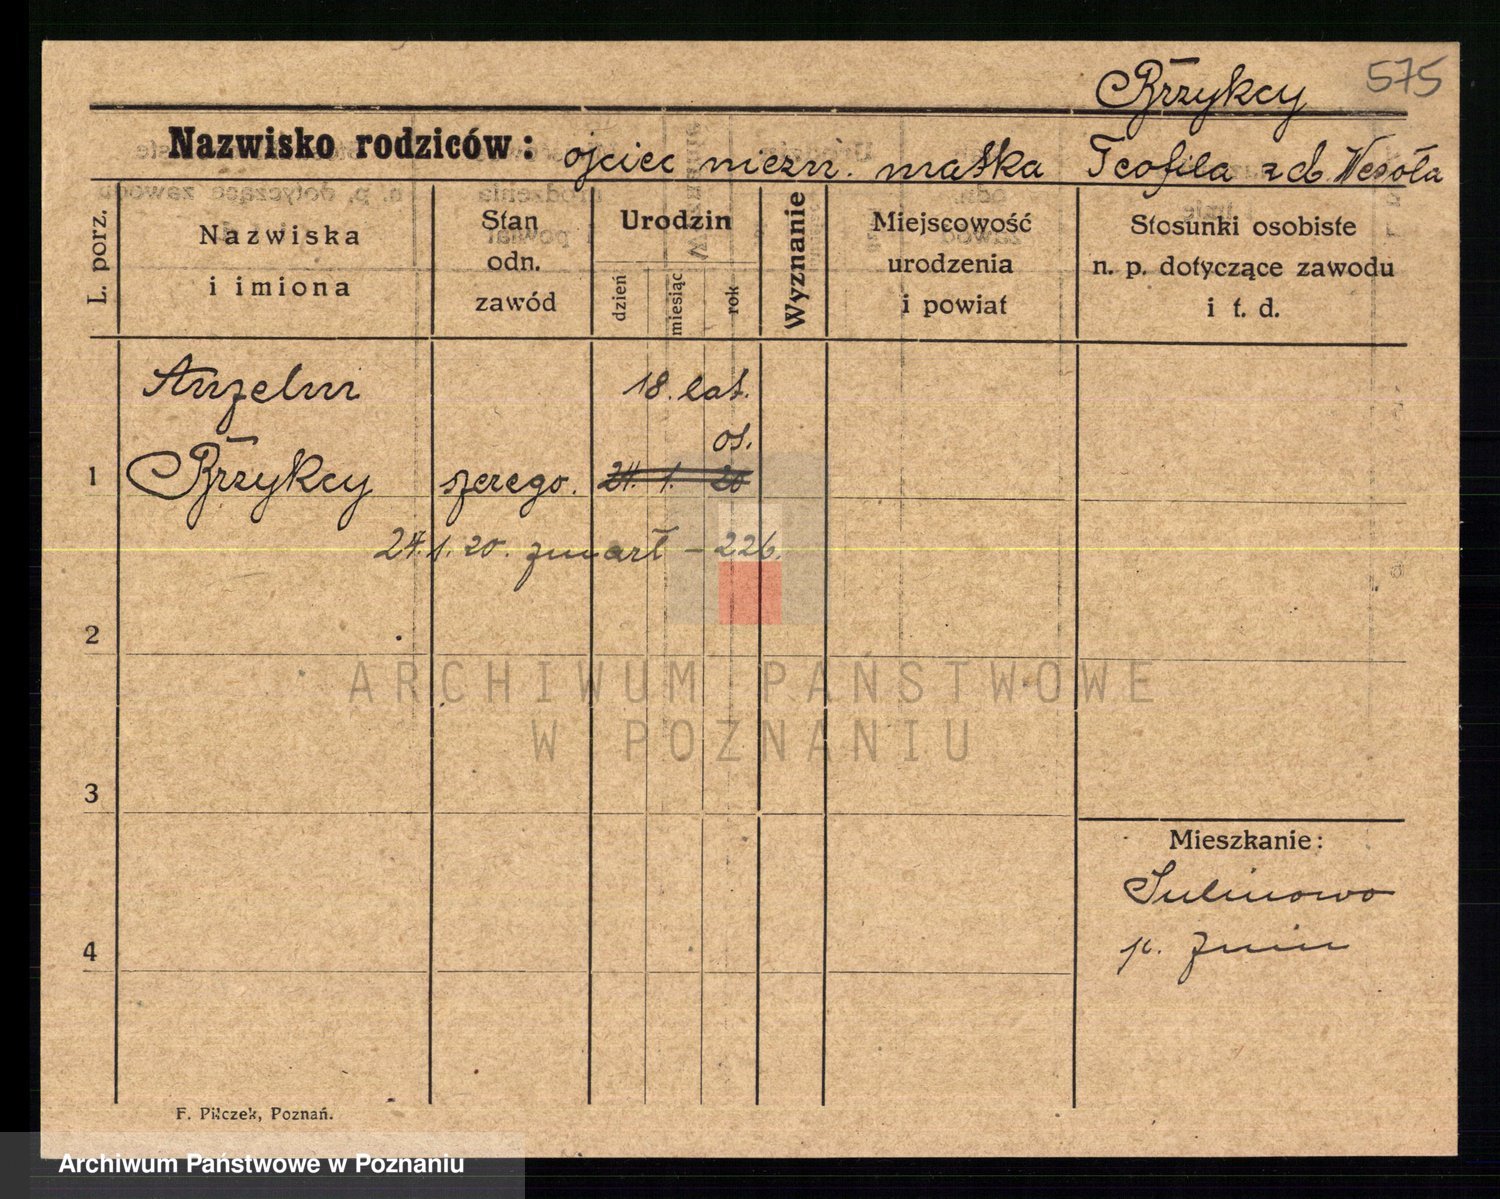 Brzykcy 575
Nazwisko rodziców: ojciec niezn. matka Teofila z d. Wesoła
L. porz.
Nazwiska i imiona
Stan odn. zawód
Urodzin
dzień miesiąc rok
Wyznanie
Miejscowość urodzenia i powiat
Stosunki osobiste n. p. dotyczące zawodu i t. d.
Anzelm 18. lat.
os.
1 Brzykcy szerego. 24. 1. 20
24.1.20. zmarł - 226.
2
ARCHIWUM PAŃSTWOWE
W POZNANIU
3
Mieszkanie:
Sulinowo
4 p. Żnin
F. Pilczek, Poznań.
Archiwum Państwowe w Poznaniu